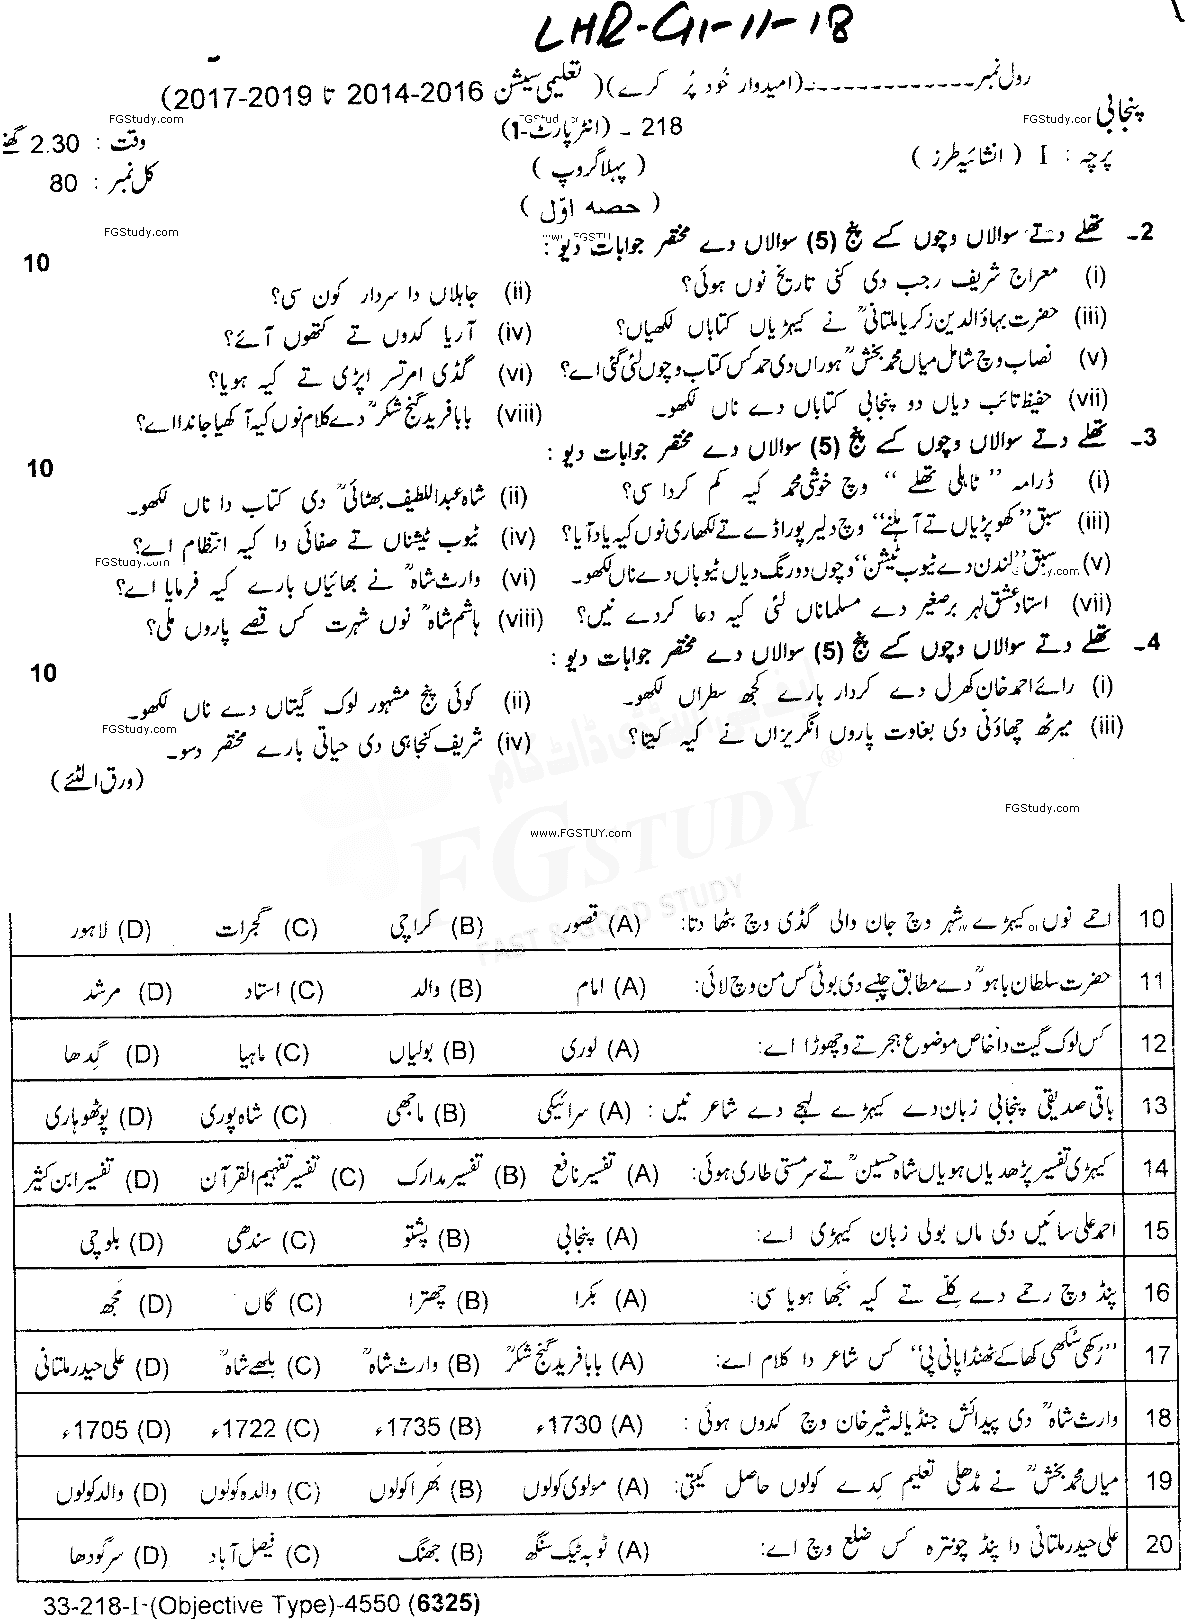 LHR-G1-11-18
رول نمبر ------------- (امیدوار خود پُر کرے) ( تعلیمی سیشن 2016-2014 تا 2019-2017)
پنجابی 218 ـ (انٹر پارٹ-1) وقت : 2.30 گھنٹے
FGStudy.com FGStud FGStudy.cor
پرچہ : I ( انشائیہ طرز ) (پہلا گروپ ) کل نمبر : 80
( حصہ اوّل )
FGStudy.com
2ـ تھلے دتے سوالاں وچوں کسے پنج (5) سوالاں دے مختصر جوابات دیو : 10
www.FGSTU
(i) معراج شریف رجب دی کنی تاریخ نوں ہوئی؟ (ii) جاہلاں دا سردار کون سی؟
(iii) حضرت بہاؤالدین زکریا ملتانیؒ نے کیہڑیاں کتاباں لکھیاں؟ (iv) آریا کدوں تے کتھوں آئے؟
(v) نصاب وچ شامل میاں محمد بخشؒ ہوراں دی حمد کس کتاب وچوں لئی گئی اے؟ (vi) گڈی امرتسر اپڑی تے کیہ ہویا؟
(vii) حفیظ تائب دیاں دو پنجابی کتاباں دے ناں لکھو۔ (viii) بابا فرید گنج شکرؒ دے کلام نوں کیہ آکھیا جاندا اے؟
3ـ تھلے دتے سوالاں وچوں کسے پنج (5) سوالاں دے مختصر جوابات دیو : 10
(i) ڈرامہ ”ٹاہلی تھلے“ وچ خوشی محمد کیہ کم کردا سی؟ (ii) شاہ عبداللطیف بھٹائیؒ دی کتاب دا ناں لکھو۔
(iii) سبق ”کھوپڑیاں تے آہلنے“ وچ دلیر پوراڈے تے لکھاری نوں کیہ یاد آیا؟ (iv) ٹیوب ٹیشناں تے صفائی دا کیہ انتظام اے؟
FGStudy.com
(v) سبق ”لندن دے ٹیوب ٹیشن“ وچوں دو رنگ دیاں ٹیوباں دے ناں لکھو۔ (vi) وارث شاہؒ نے بھائیاں بارے کیہ فرمایا اے؟
(vii) استاد عشق لہر برصغیر دے مسلماناں لئی کیہ دعا کردے نیں؟ (viii) ہاشم شاہؒ نوں شہرت کس قصے پاروں ملی؟
4ـ تھلے دتے سوالاں وچوں کسے پنج (5) سوالاں دے مختصر جوابات دیو : 10
(i) رائے احمد خان کھرل دے کردار بارے کجھ سطراں لکھو۔ (ii) کوئی پنج مشہور لوک گیتاں دے ناں لکھو۔
FGStudy.com
(iii) میرٹھ چھاؤنی دی بغاوت پاروں انگریزاں نے کیہ کیتا؟ (iv) شریف کنجاہی دی حیاتی بارے مختصر دسو۔
(ورق الٹئے)
FGStudy.com
www.FGSTUY.com
FGSTUDY®
FAST & GOOD STUDY
10 احمے نوں کیہڑے شہر وچ جان والی گڈی وچ بٹھا دتا: (A) قصور (B) کراچی (C) گجرات (D) لاہور
11 حضرت سلطان باہوؒ دے مطابق چنبے دی بوٹی کس من وچ لائی: (A) امام (B) والد (C) استاد (D) مرشد
12 کس لوک گیت دا خاص موضوع ہجر تے وچھوڑا اے: (A) لوری (B) بولیاں (C) ماہیا (D) گدھا
13 باقی صدیقی پنجابی زبان دے کیہڑے لہجے دے شاعر نیں : (A) سرائیکی (B) ماجھی (C) شاہ پوری (D) پوٹھوہاری
14 کیہڑی تفسیر پڑھدیاں ہویاں شاہ حسینؒ تے سرمستی طاری ہوئی: (A) تفسیر نافع (B) تفسیر مدارک (C) تفسیر تفہیم القرآن (D) تفسیر ابن کثیر
15 احمد علی سائیں دی ماں بولی زبان کیہڑی اے: (A) پنجابی (B) پشتو (C) سندھی (D) بلوچی
16 پنڈ وچ رحمے دے کِلّے تے کیہ بجھا ہویا سی: (A) بکرا (B) چھترا (C) گاں (D) مجھ
17 ”رُکھی سُکھی کھا کے ٹھنڈا پانی پی“ کس شاعر دا کلام اے: (A) بابا فرید گنج شکرؒ (B) وارث شاہؒ (C) بلھے شاہؒ (D) علی حیدر ملتانی
18 وارث شاہؒ دی پیدائش جنڈیالہ شیر خان وچ کدوں ہوئی : (A) 1730ء (B) 1735ء (C) 1722ء (D) 1705ء
19 میاں محمد بخشؒ نے مڈھلی تعلیم کِدے کولوں حاصل کیتی: (A) مولوی کولوں (B) بھرا کولوں (C) والدہ کولوں (D) والد کولوں
20 علی حیدر ملتانی دا پنڈ چونترہ کس ضلع وچ اے: (A) ٹوبہ ٹیک سنگھ (B) جھنگ (C) فیصل آباد (D) سرگودھا
33-218-I-(Objective Type)-4550 (6325)